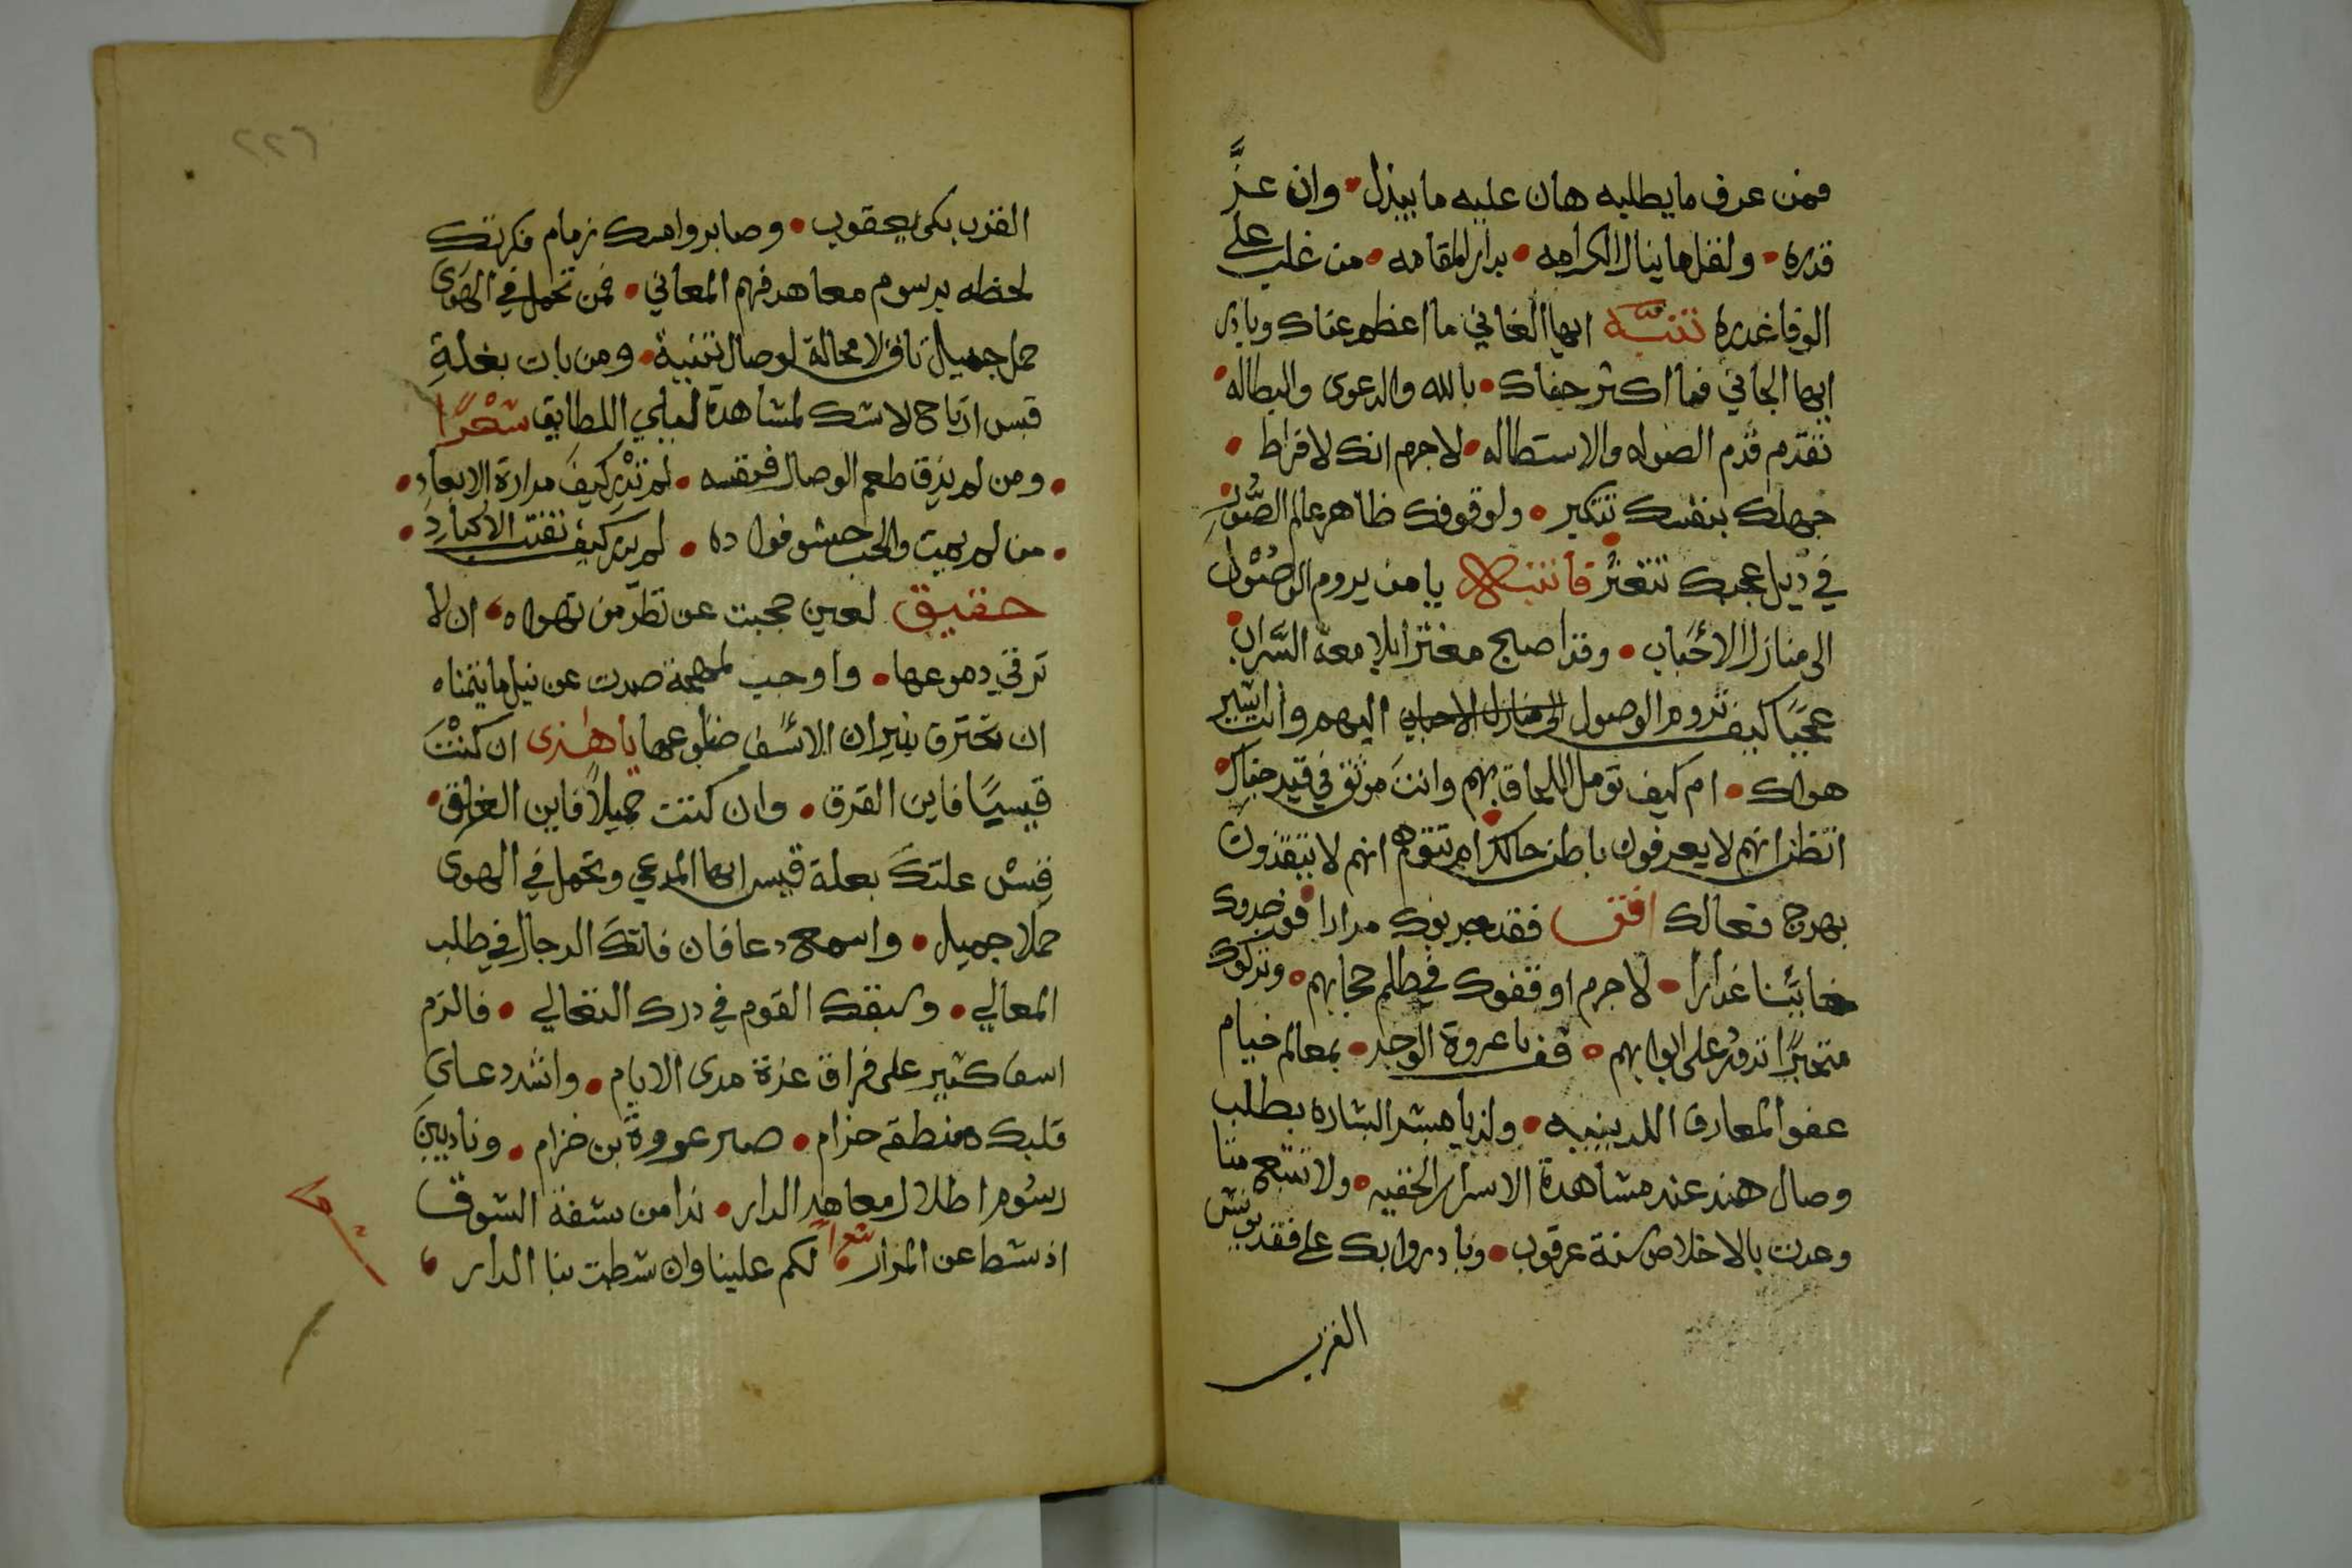 فمن عرف ما يطلبه هان عليه ما يبذل • وان عزَّ
قدره • ولفلما ينال الكرامه • بدار المقامه • من غلب على
الوفا غدره تنبّه ايها الفاني ما اعظم عناك وبادر
ايها الجاني فما اكثر جفاك • بالله والدعوى والبطاله •
تقدم قدم الصوله والاستطاله • لا جرم انك لافراط •
جهلك بنفسك تتكبر • ولوقوفك ظاهر عالم الصُّور •
في ذيل عجبك تتعثر فانتبه يا من يروم الوصُوْل
الى منازل الاحْبَاب • وقد اصبح مغترا بلامعة السَّراب •
عجبًا كيف تروم الوصول الى منازل الاحباب اليهم وانت اسير
هواك • ام كيف تومل اللحاق بهم وانتَ موثق في قيد جفاك •
اتظن انهم لا يعرفون باطن حالك • ام تتوهم انهم لا ينتقدون
بهرج فعالك افق فقد جربوك مرارا • فوجدوك
خايًنا غدارا • لا جرم اوقفوك في ظلم حجابهم • وتركوك
متحيرًا تدور على ابوابهم • قف يا عروة الوجد • بمعالم خيام
عفو المعارف اللدينيه • ولذ يا بشر البشاره بطلب
وصال هند عند مشاهدة الاسرار الخفيه • ولا تتبع متا
وعدت بالاخلاص سنة عرقوب • وبادر وابك على فقد يونس
القرب
٢٢٦
القرب بكى يعقوب • وصابر وامسك زمام فكرتك
لحظه برسوم معاهد فهم المعاني • فمن تحمل في الهَوَى
حمل جميل نافى لا محالة لوصال بثنية • ومن بات بغلةِ
قيس ارتاح لا شك لمشاهدة ليلى اللطايق شعْرًا
• ومن لم يذق طعم الوصال فنفسه • لم تَدْرِ كيفَ مرارة الابعادِ •
• من لم يبت والحب حشو فواده • لم يدر كيف تفتت الاكبادِ •
حقيق لعين حجبت عن نظر من تهواه • ان لا
ترقي دموعها • واوجب لمهجة صدت عن نيل ما تتمناه
ان تحترق بنيران الاسَف ضلوعها يا هذى ان كنْتَ
قيسيًا فاين القرق • وان كنت جميلاً فاين الغرق •
قِسْ علتكَ بعلة قيس ايها المدعي وتحمل في الهوى
حملا جميل • واسمع دعا فان فاتكَ الرجال في طلب
المعالي • وسبقك القوم في درك التغالي • فالزم
اسف كثير على فراق عزة مدى الايام • واشدد على
قلبك منطقة حزام • صبر عروةَ بن حزام • وناد بينَ
رسُوم اطلال معاهد الدار • ندا من شفه الشوق
اذ شط عن المزار • شعرا لكم علينا وان شطت بنا الدار •